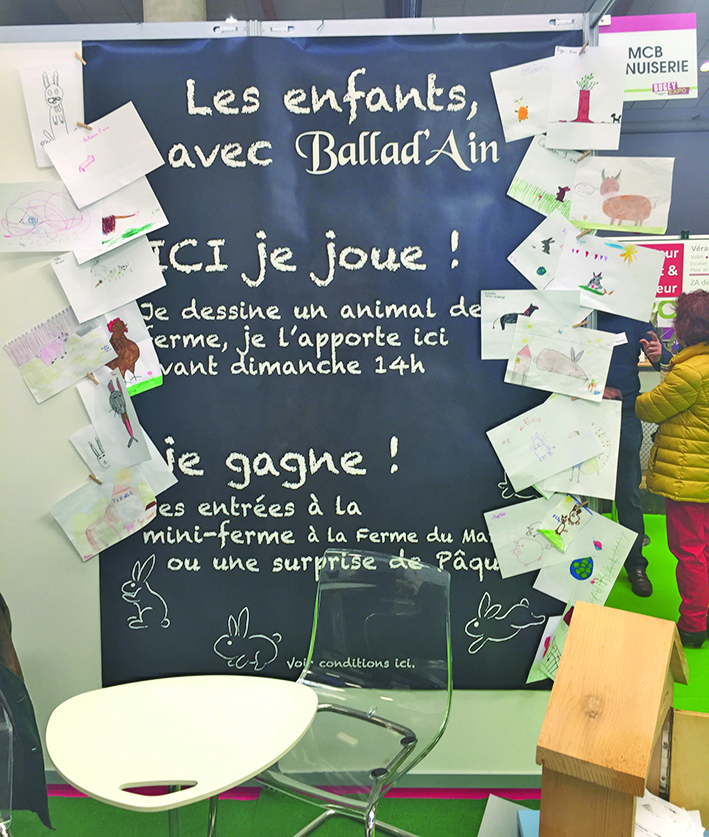 Les enfants,
avec Ballad'Ain
ICI je joue !
Je dessine un animal de
ferme, je l'apporte ici
avant dimanche 14h
je gagne !
des entrées à la
mini-ferme à la Ferme du
ou une surprise de
Voir conditions ici.
MCB
NUISERIE
BUGEY
EXPO
Véra
our
t &
eur
ZA de